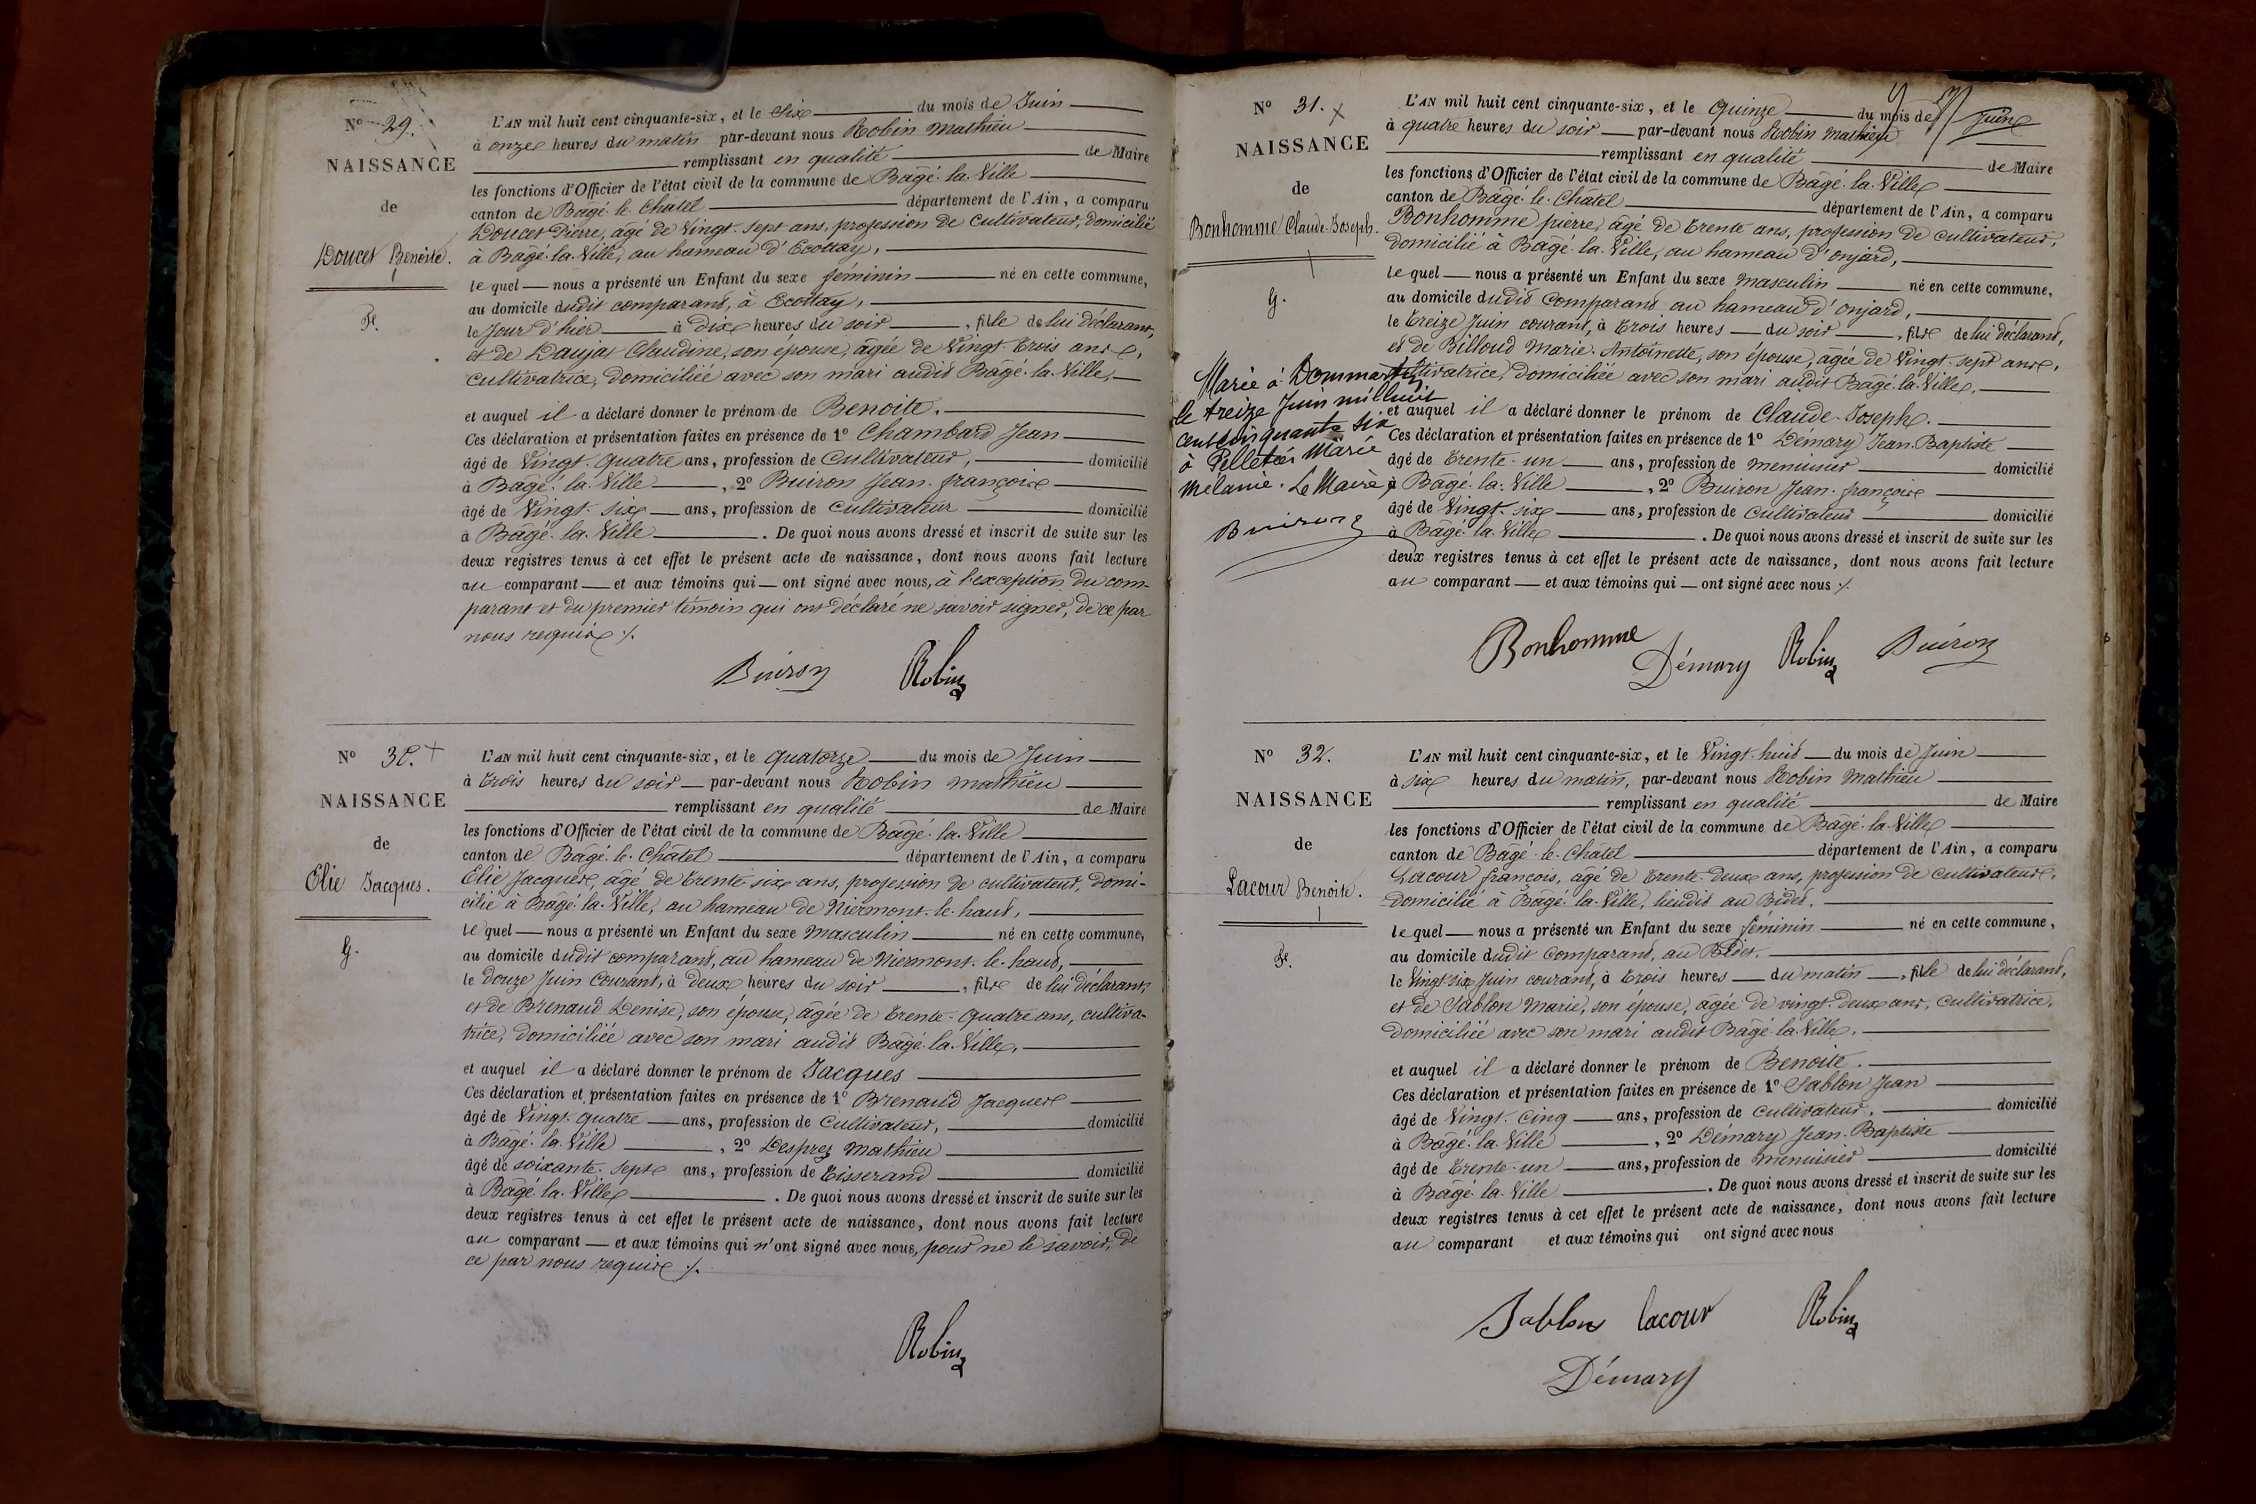 N° 29.
NAISSANCE
de
Doucet Benoite.
F.
L'AN mil huit cent cinquante-six, et le Six du mois de Juin
à onze heures du matin par-devant nous Robin Mathieu
remplissant en qualité de Maire
les fonctions d'Officier de l'état civil de la commune de Bâgé-la-Ville
canton de Bâgé-le-Chatel département de l'Ain, a comparu
Doucet Pierre, âgé de Vingt-sept ans, profession de Cultivateur, domicilié
à Bâgé-la-Ville, au hameau d'Ecottay,
lequel nous a présenté un Enfant du sexe féminin né en cette commune,
au domicile dudit comparant, à Ecottay,
le Jour d'hier à dix heures du soir, fille de lui déclarant,
et de Daujat Claudine, son épouse, âgée de Vingt-trois ans,
cultivatrice, domiciliée avec son mari audit Bâgé-la-Ville,
et auquel il a déclaré donner le prénom de Benoite.
Ces déclaration et présentation faites en présence de 1° Chambard Jean
âgé de Vingt-quatre ans, profession de Cultivateur, domicilié
à Bâgé-la-Ville, 2° Buiron Jean-françois
âgé de Vingt-six ans, profession de Cultivateur domicilié
à Bâgé-la-Ville. De quoi nous avons dressé et inscrit de suite sur les
deux registres tenus à cet effet le présent acte de naissance, dont nous avons fait lecture
au comparant et aux témoins qui ont signé avec nous, à l'exception du com-
parant et du premier témoin qui ont déclaré ne savoir signer, de ce par
nous requis ./.
Buiron Robin
N° 30. +
NAISSANCE
de
Elie Jacques.
G.
L'AN mil huit cent cinquante-six, et le quatorze du mois de Juin
à trois heures du soir par-devant nous Robin Mathieu
remplissant en qualité de Maire
les fonctions d'Officier de l'état civil de la commune de Bâgé-la-Ville
canton de Bâgé-le-Châtel département de l'Ain, a comparu
Elie Jacques, âgé de trente six ans, profession de cultivateur, domi-
cilié à Bâgé-la-Ville, au hameau de Niermont-le-haut,
lequel nous a présenté un Enfant du sexe Masculin né en cette commune,
au domicile dudit comparant, au hameau de Niermont-le-haut,
le douze Juin Courant, à deux heures du soir, fils de lui déclarant,
et de Brenaud Denise, son épouse, âgée de trente-quatre ans, cultiva-
trice, domiciliée avec son mari audit Bâgé-la-Ville,
et auquel il a déclaré donner le prénom de Jacques
Ces déclaration et présentation faites en présence de 1° Brenaud Jacques
âgé de Vingt-quatre ans, profession de Cultivateur, domicilié
à Bâgé-la-Ville, 2° Desprez Mathieu
âgé de soixante-sept ans, profession de Tisserand domicilié
à Bâgé-la-Ville. De quoi nous avons dressé et inscrit de suite sur les
deux registres tenus à cet effet le présent acte de naissance, dont nous avons fait lecture
au comparant et aux témoins qui n'ont signé avec nous, pour ne le savoir, de
ce par nous requis ./.
Robin
Juin
N° 31. x
NAISSANCE
de
Bonhomme Claude-Joseph.
G.
Marié à Dommartin
le treize Juin mil huit
cent cinquante six
à Pelletier Marie
Mélanie. Le Maire,
Buiron
L'AN mil huit cent cinquante-six, et le Quinze du mois de
à quatre heures du soir par-devant nous Robin Mathieu
remplissant en qualité de Maire
les fonctions d'Officier de l'état civil de la commune de Bâgé-la-Ville
canton de Bâgé-le-Châtel département de l'Ain, a comparu
Bonhomme pierre, âgé de trente ans, profession de cultivateur,
domicilié à Bâgé-la-Ville, au hameau d'onjard,
lequel nous a présenté un Enfant du sexe masculin né en cette commune,
au domicile dudit Comparant au hameau d'onjard,
le treize Juin courant, à trois heures du soir, fils de lui déclarant,
et de Billoud Marie-Antoinette, son épouse, âgée de Vingt-sept ans,
cultivatrice, domiciliée avec son mari audit Bâgé-la-Ville,
et auquel il a déclaré donner le prénom de Claude-Joseph.
Ces déclaration et présentation faites en présence de 1° Démary Jean-Baptiste
âgé de trente-un ans, profession de menuisier domicilié
à Bâgé-la-Ville, 2° Buiron Jean-françois
âgé de Vingt-six ans, profession de Cultivateur domicilié
à Bâgé-la-Ville. De quoi nous avons dressé et inscrit de suite sur les
deux registres tenus à cet effet le présent acte de naissance, dont nous avons fait lecture
au comparant et aux témoins qui ont signé avec nous ./.
Bonhomme Démary Robin Buiron
N° 32.
NAISSANCE
de
Lacour Benoite.
F.
L'AN mil huit cent cinquante-six, et le Vingt-huit du mois de Juin
à six heures du matin, par-devant nous Robin Mathieu
remplissant en qualité de Maire
les fonctions d'Officier de l'état civil de la commune de Bâgé-la-Ville
canton de Bâgé-le-Chatel département de l'Ain, a comparu
Lacour françois, âgé de trente-deux ans, profession de cultivateur,
domicilié à Bâgé-la-Ville, lieudit au Bidet.
lequel nous a présenté un Enfant du sexe féminin né en cette commune,
au domicile dudit Comparant, au Bidet.
le Vingt-six Juin courant, à trois heures du matin, fille de lui déclarant,
et de Sablon Marie, son épouse, âgée de vingt-deux ans, Cultivatrice,
domiciliée avec son mari audit Bâgé-la-Ville.
et auquel il a déclaré donner le prénom de Benoite.
Ces déclaration et présentation faites en présence de 1° Sablon Jean
âgé de Vingt-Cinq ans, profession de Cultivateur, domicilié
à Bâgé-la-Ville, 2° Démary Jean-Baptiste
âgé de trente-un ans, profession de menuisier domicilié
à Bâgé-la-Ville. De quoi nous avons dressé et inscrit de suite sur les
deux registres tenus à cet effet le présent acte de naissance, dont nous avons fait lecture
au comparant et aux témoins qui ont signé avec nous
Sablon lacour Robin
Démary